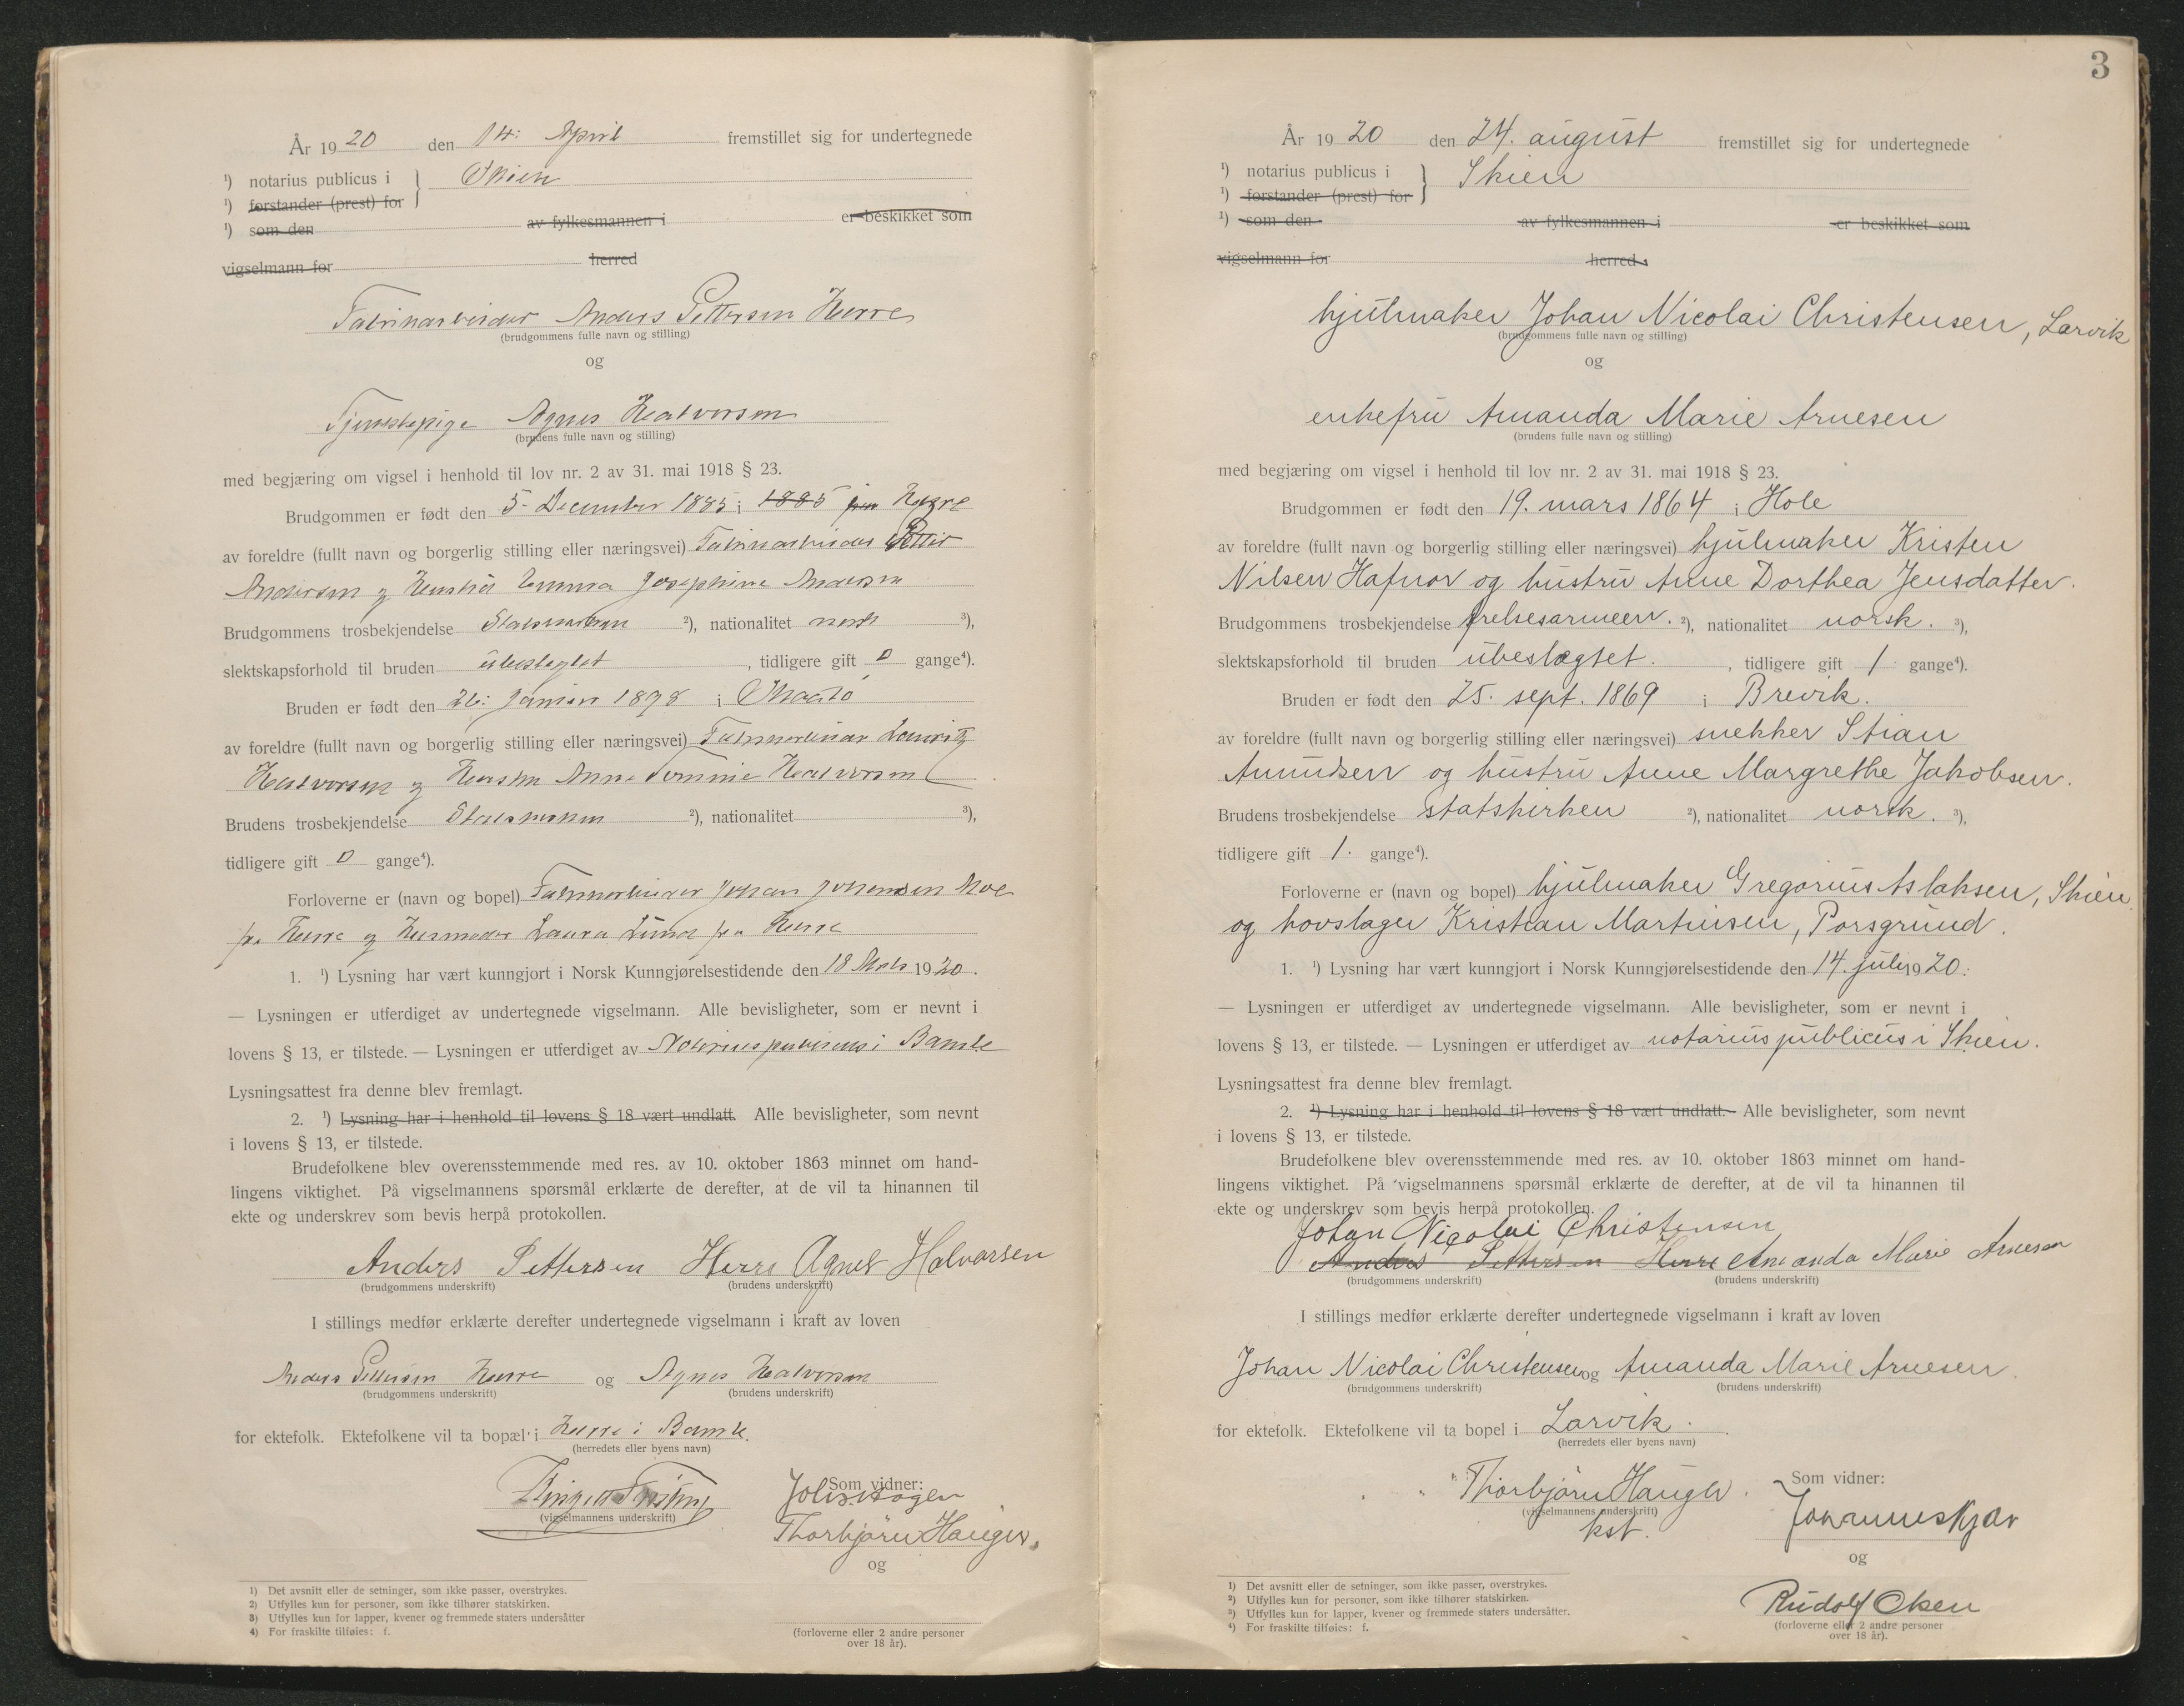 År 1920 den 14: April fremstillet sig for undertegnede
¹) notarius publicus i } Skien
¹) forstander (prest) for
¹) som den av fylkesmannen i er beskikket som
vigselmann for herred
Fabrikarbeider Anders Pettersen Herre
(brudgommens fulle navn og stilling)
og
Tjenestepige Agnes Halvorsen
(brudens fulle navn og stilling)
med begjæring om vigsel i henhold til lov nr. 2 av 31. mai 1918 § 23.
Brudgommen er født den 5. December 1885 i 1885 Herre
av foreldre (fullt navn og borgerlig stilling eller næringsvei) Fabrikarbeider Petter
Andersen og Hustru Emma Josephine Andersen
Brudgommens trosbekjendelse Statskirken ²), nationalitet norsk ³),
slektskapsforhold til bruden ubeslegtet, tidligere gift 0 gange⁴).
Bruden er født den 26: Januar 1898 i Skaatø
av foreldre (fullt navn og borgerlig stilling eller næringsvei) Fabrikarbeider Lauritz
Halvorsen og Hustru Anne Tomine Halvorsen
Brudens trosbekjendelse Statskirken ²), nationalitet ³),
tidligere gift 0 gange⁴).
Forloverne er (navn og bopel) Fabrikarbeider Johan Johansen Moe
fra Herre og Husmoder Laura Lund fra Herre
1. ¹) Lysning har vært kunngjort i Norsk Kunngjørelsestidende den 18 Mars 1920.
— Lysningen er utferdiget av undertegnede vigselmann. Alle bevisligheter, som er nevnt i
lovens § 13, er tilstede. — Lysningen er utferdiget av Notarius publicus i Bamle
Lysningsattest fra denne blev fremlagt.
2. ¹) Lysning har i henhold til lovens § 18 vært undlatt. Alle bevisligheter, som nevnt
i lovens § 13, er tilstede.
Brudefolkene blev overensstemmende med res. av 10. oktober 1863 minnet om hand-
lingens viktighet. På vigselmannens spørsmål erklærte de derefter, at de vil ta hinannen til
ekte og underskrev som bevis herpå protokollen.
Anders Pettersen Herre Agnes Halvorsen
(brudgommens underskrift) (brudens underskrift)
I stillings medfør erklærte derefter undertegnede vigselmann i kraft av loven
Anders Pettersen Herre og Agnes Halvorsen
(brudgommens underskrift) (brudens underskrift)
for ektefolk. Ektefolkene vil ta bopæl i Herre i Bamle.
(herredets eller byens navn)
Som vidner:
(vigselmannens underskrift)
Thorbjørn Hauger.
og
(forloverne eller 2 andre personer
over 18 år).
1) Det avsnitt eller de setninger, som ikke passer, overstrykes.
2) Utfylles kun for personer, som ikke tilhører statskirken.
3) Utfylles kun for lapper, kvener og fremmede staters undersåtter
4) For fraskilte tilføies: f.
3
År 1920 den 24. august fremstillet sig for undertegnede
¹) notarius publicus i } Skien
¹) forstander (prest) for
¹) som den av fylkesmannen i er beskikket som
vigselmann for herred
hjulmaker Johan Nicolai Christensen, Larvik
(brudgommens fulle navn og stilling)
og
enkefru Amanda Marie Arnesen
(brudens fulle navn og stilling)
med begjæring om vigsel i henhold til lov nr. 2 av 31. mai 1918 § 23.
Brudgommen er født den 19. mars 1864 i Hole
av foreldre (fullt navn og borgerlig stilling eller næringsvei) hjulmaker Kristen
Nilsen Hafnor og hustru Anne Dorthea Jensdatter.
Brudgommens trosbekjendelse frelsesarmeen. ²), nationalitet norsk. ³),
slektskapsforhold til bruden ubeslegtet., tidligere gift 1 gange⁴).
Bruden er født den 25. sept. 1869 i Brevik.
av foreldre (fullt navn og borgerlig stilling eller næringsvei) snekker Stian
Amundsen og hustru Anne Margrethe Jakobsen.
Brudens trosbekjendelse statskirken ²), nationalitet norsk. ³),
tidligere gift 1. gange⁴).
Forloverne er (navn og bopel) hjulmaker Gregorius Aslaksen, Skien
og hovslager Kristian Martinsen, Porsgrund.
1. ¹) Lysning har vært kunngjort i Norsk Kunngjørelsestidende den 14. juli 1920.
— Lysningen er utferdiget av undertegnede vigselmann. Alle bevisligheter, som er nevnt i
lovens § 13, er tilstede. — Lysningen er utferdiget av notarius publicus i Skien.
Lysningsattest fra denne blev fremlagt.
2. ¹) Lysning har i henhold til lovens § 18 vært undlatt. Alle bevisligheter, som nevnt
i lovens § 13, er tilstede.
Brudefolkene blev overensstemmende med res. av 10. oktober 1863 minnet om hand-
lingens viktighet. På vigselmannens spørsmål erklærte de derefter, at de vil ta hinannen til
ekte og underskrev som bevis herpå protokollen.
Johan Nicolai Christensen
Anders Pettersen Herre Amanda Marie Arnesen
(brudgommens underskrift) (brudens underskrift)
I stillings medfør erklærte derefter undertegnede vigselmann i kraft av loven
Johan Nicolai Christensen og Amanda Marie Arnesen.
(brudgommens underskrift) (brudens underskrift)
for ektefolk. Ektefolkene vil ta bopel i Larvik.
(herredets eller byens navn)
Thorbjørn Hauger. Som vidner:
(vigselmannens underskrift)
kst. Johannes Kjær
og
Rudolf Olsen
(forloverne eller 2 andre personer
over 18 år).
¹) Det avsnitt eller de setninger, som ikke passer, overstrykes.
²) Utfylles kun for personer, som ikke tilhører statskirken.
³) Utfylles kun for lapper, kvener og fremmede staters undersåtter.
⁴) For fraskilte tilføies: f.